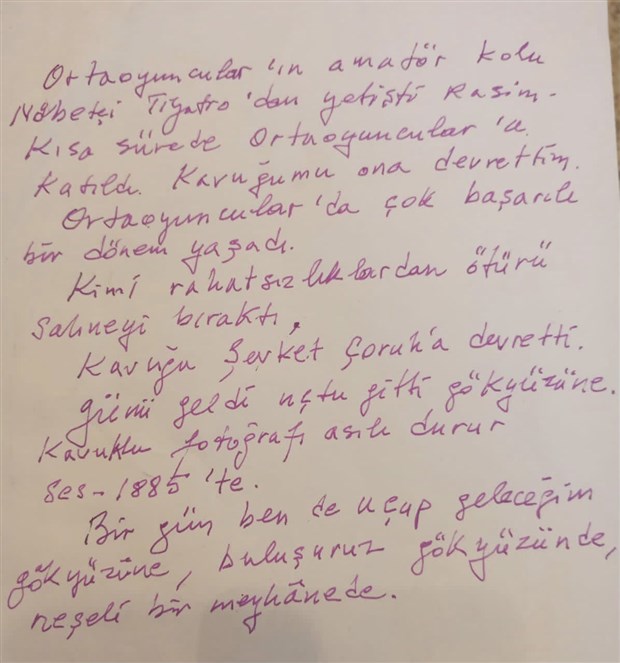 Ortaoyuncular'ın amatör kolu
Nöbetçi Tiyatro'dan yetişti Rasim.
Kısa sürede Ortaoyuncular'a
katıldı. Kavuğumu ona devrettim.
Ortaoyuncular'da çok başarılı
bir dönem yaşadı.
Kimi rahatsızlıklardan ötürü
sahneyi bıraktı,
Kavuğu Şevket Çoruh'a devretti.
Günü geldi uçtu gitti gökyüzüne.
Kavuklu fotoğrafı asılı durur
Ses-1885'te.
Bir gün ben de uçup geleceğim
gökyüzüne, buluşuruz gökyüzünde,
neşeli bir meyhânede.